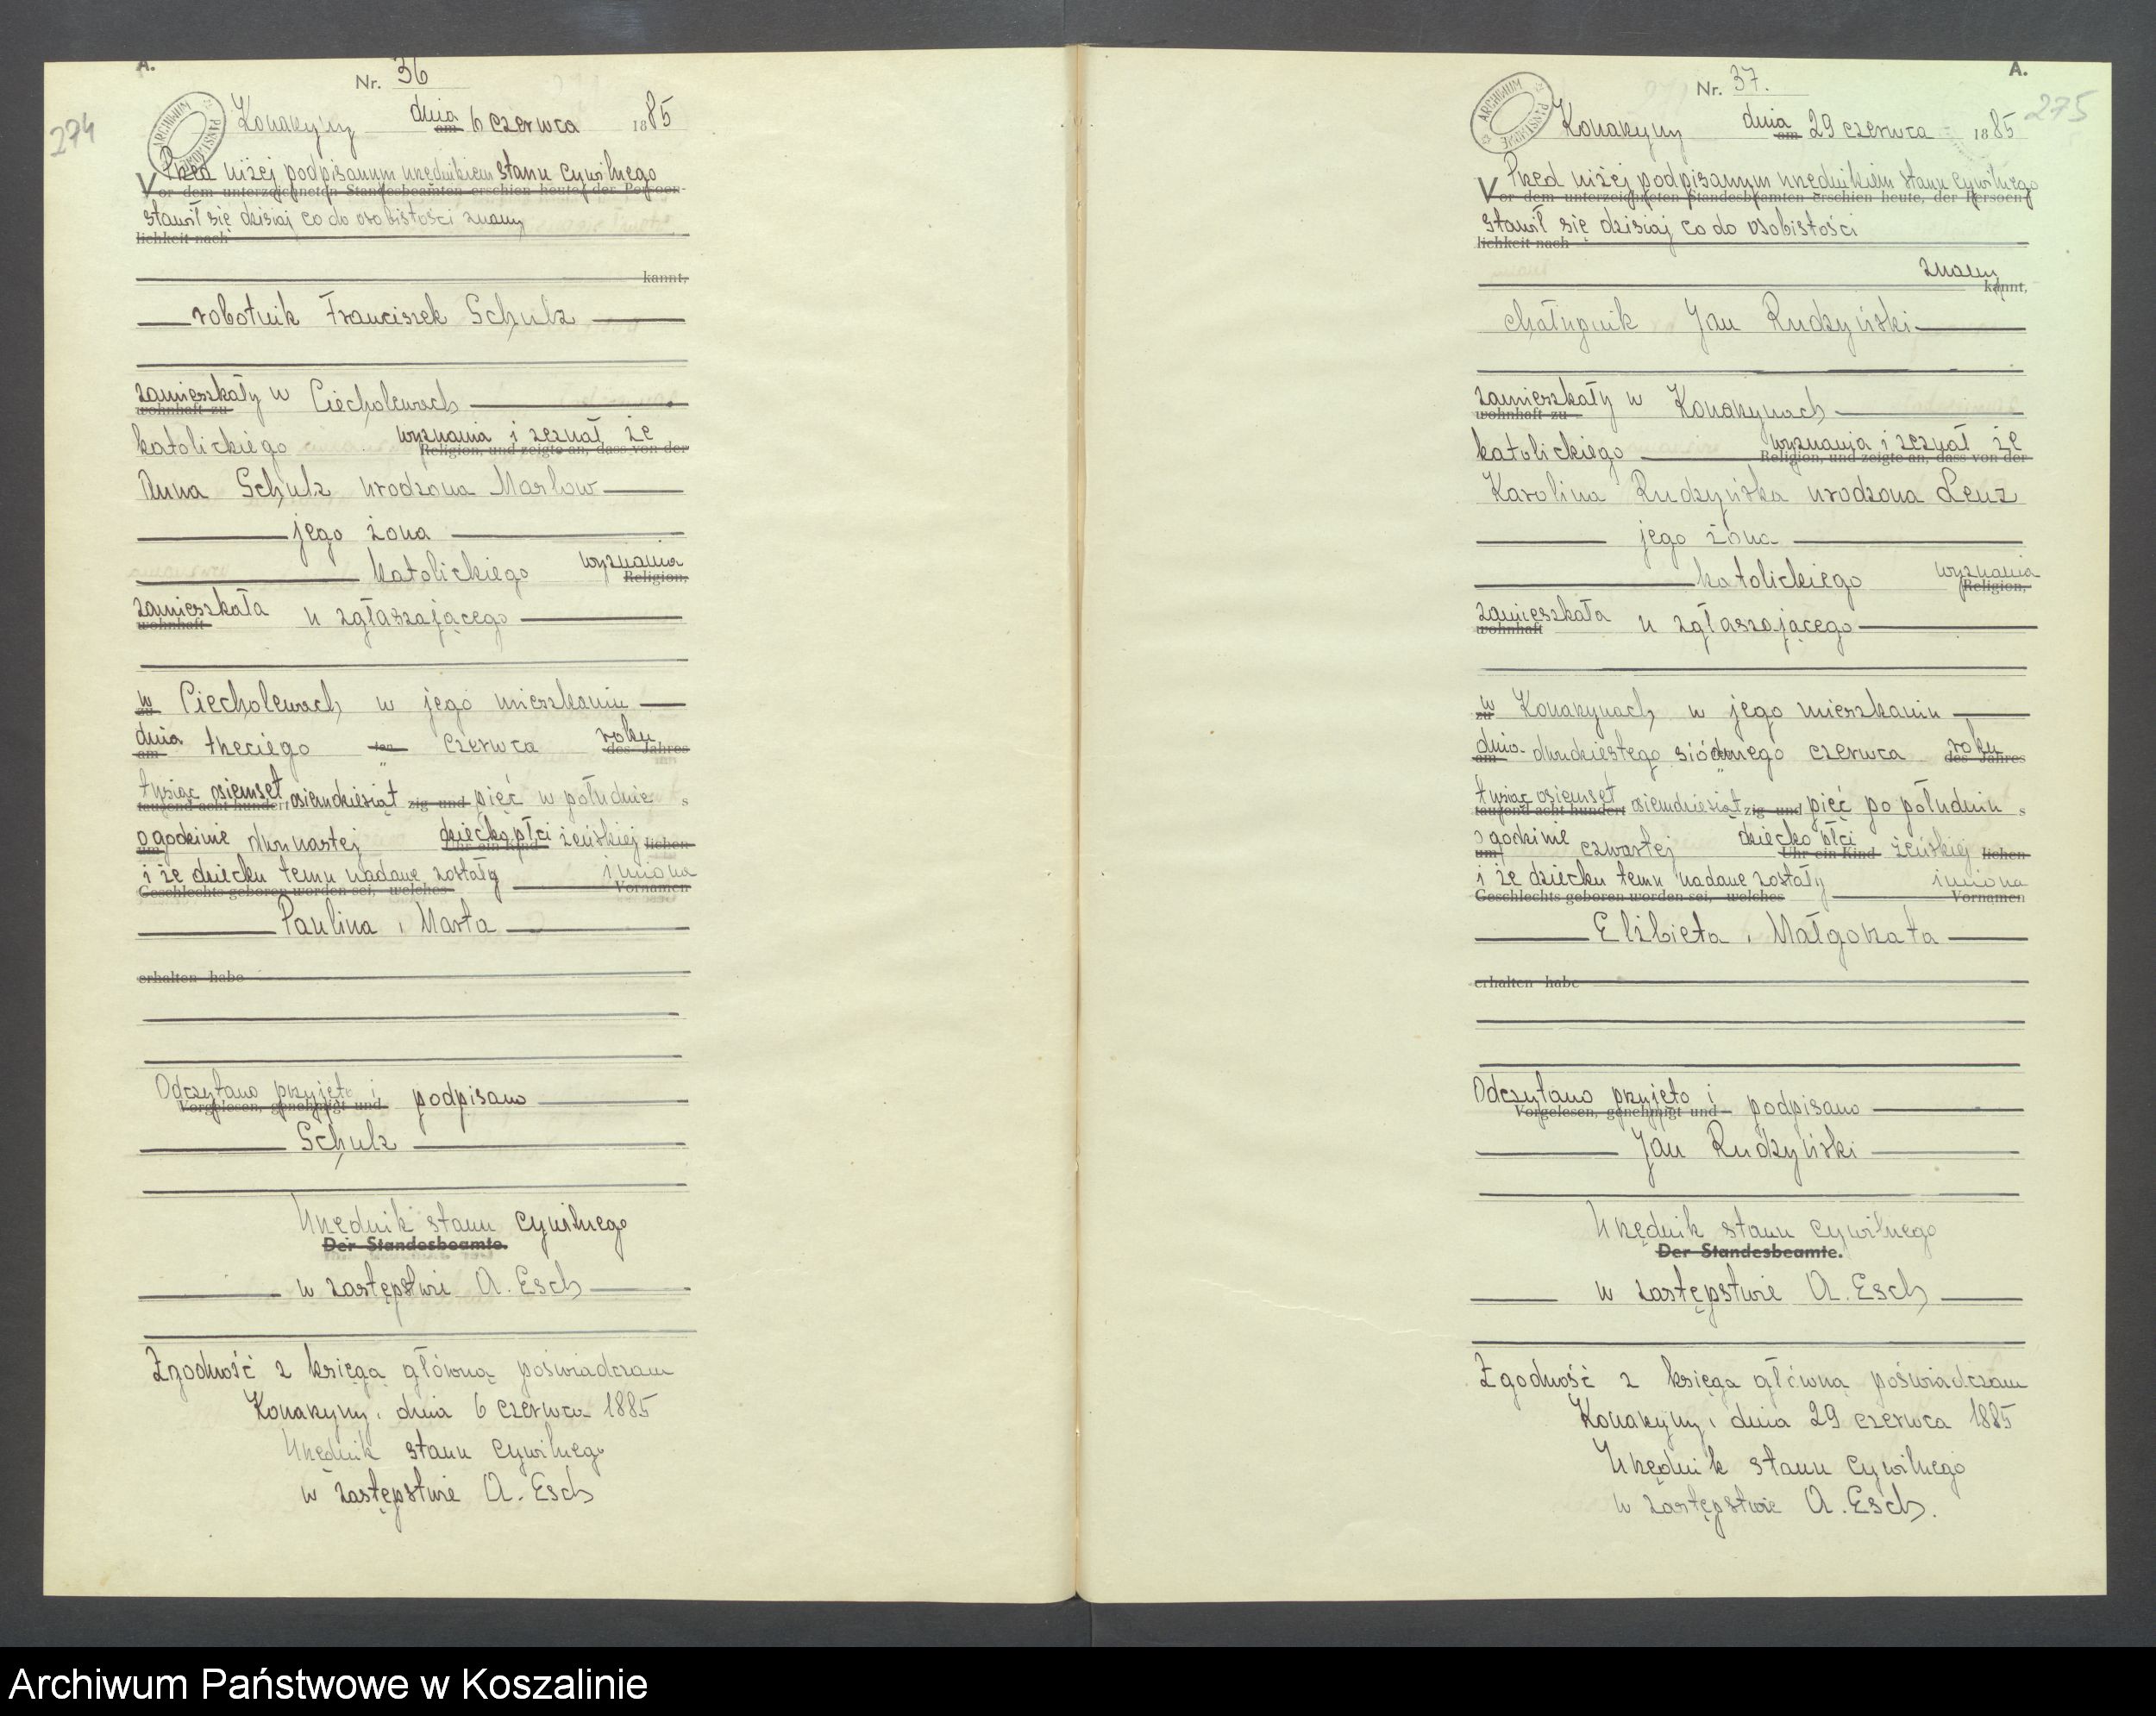 A.
Nr. 36
274
ARCHIWUM PAŃSTWOWE
Konarzyny dnia am 6 czerwca 1885
Przed niżej podpisanym urzędnikiem stanu cywilnego
Vor dem unterzeichneten Standesbeamten erschien heute, der Persoen-
stawił się dzisiaj co do osobistości znany
lichkeit nach
kannt,
robotnik Franciszek Schulz
zamieszkały w Ciecholewach
wohnhaft zu
katolickiego wyznania i zeznał że
Religion, und zeigte an, dass von der
Anna Schulz urodzona Marlow
jego żona
katolickiego wyznania
Religion,
zamieszkała u zgłaszającego
wohnhaft
w Ciecholewach w jego mieszkaniu
zu
dnia trzeciego ten czerwca roku
am des Jahres
tysiąc osiemset osiemdziesiąt zig und pięć w południe s
tausend acht hundert
o godzinie dwunastej dziecko płci żeńskiej lichen
um Uhr ein Kind
i że dziecku temu nadane zostały imiona
Geschlechts geboren worden sei, welches Vornamen
Paulina, Marta
erhalten habe
Odczytano przyjęto i podpisano
Vorgelesen, genehmigt und
Schulz
Urzędnik stanu cywilnego
Der Standesbeamte.
w zastępstwi A. Esch
Zgodność z księgą główną poświadczam
Konarzyny, dnia 6 czerwca 1885
Urzędnik stanu cywilnego
w zastępstwie A. Esch
A.
Nr. 37.
275
ARCHIWUM PAŃSTWOWE
Konarzyny dnia am 29 czerwca 1885
Przed niżej podpisanym urzędnikiem stanu cywilnego
Vor dem unterzeichneten Standesbeamten erschien heute, der Persoen
stawił się dzisiaj co do osobistości
lichkeit nach
znany
kannt,
chałupnik Jan Rudzyński
zamieszkały w Konarzynach
wohnhaft zu
katolickiego wyznania i zeznał że
Religion, und zeigte an, dass von der
Karolina Rudzyńska urodzona Lenz
jego żona
katolickiego wyznania
Religion,
zamieszkała u zgłaszającego
wohnhaft
w Konarzynach w jego mieszkaniu
zu
dnia dwudziestego siódmego czerwca roku
am des Jahres
tysiąc osiemset osiemdziesiąt zig und pięć po południu s
tausend acht hundert
o godzinie czwartej dziecko płci żeńskiej lichen
um Uhr ein Kind
i że dziecku temu nadane zostały imiona
Geschlechts geboren worden sei, welches Vornamen
Elżbieta, Małgorzata
erhalten habe
Odczytano przyjęto i podpisano
Vorgelesen, genehmigt und
Jan Rudzyński
Urzędnik stanu cywilnego
Der Standesbeamte.
w zastępstwie A. Esch
Zgodność z księgą główną poświadczam
Konarzyny, dnia 29 czerwca 1885
Urzędnik stanu cywilnego
w zastępstwie A. Esch.
Archiwum Państwowe w Koszalinie